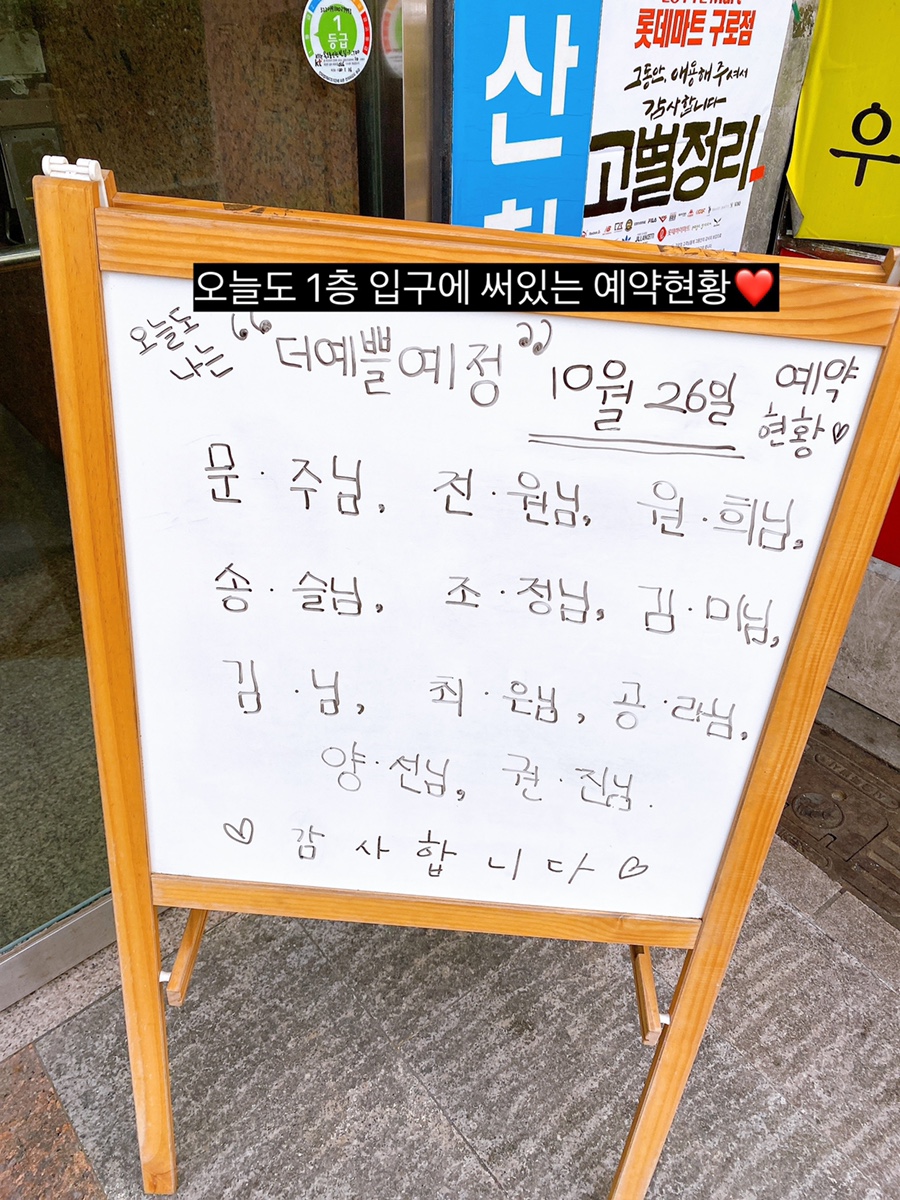 1
등급
kt
산
롯데마트 구로점
그동안, 애용해 주셔서
감사합니다
고별정리
우
오늘도 1층 입구에 써있는 예약현황❤️
오늘도 나는 “더예쁠예정” 10월 26일 예약현황♡
문·주님, 전·원님, 원·희님,
송·슬님, 조·정님, 김·미님,
김·님, 최·은님, 공·라님,
양·선님, 권·진님.
♡ 감사합니다 ♡